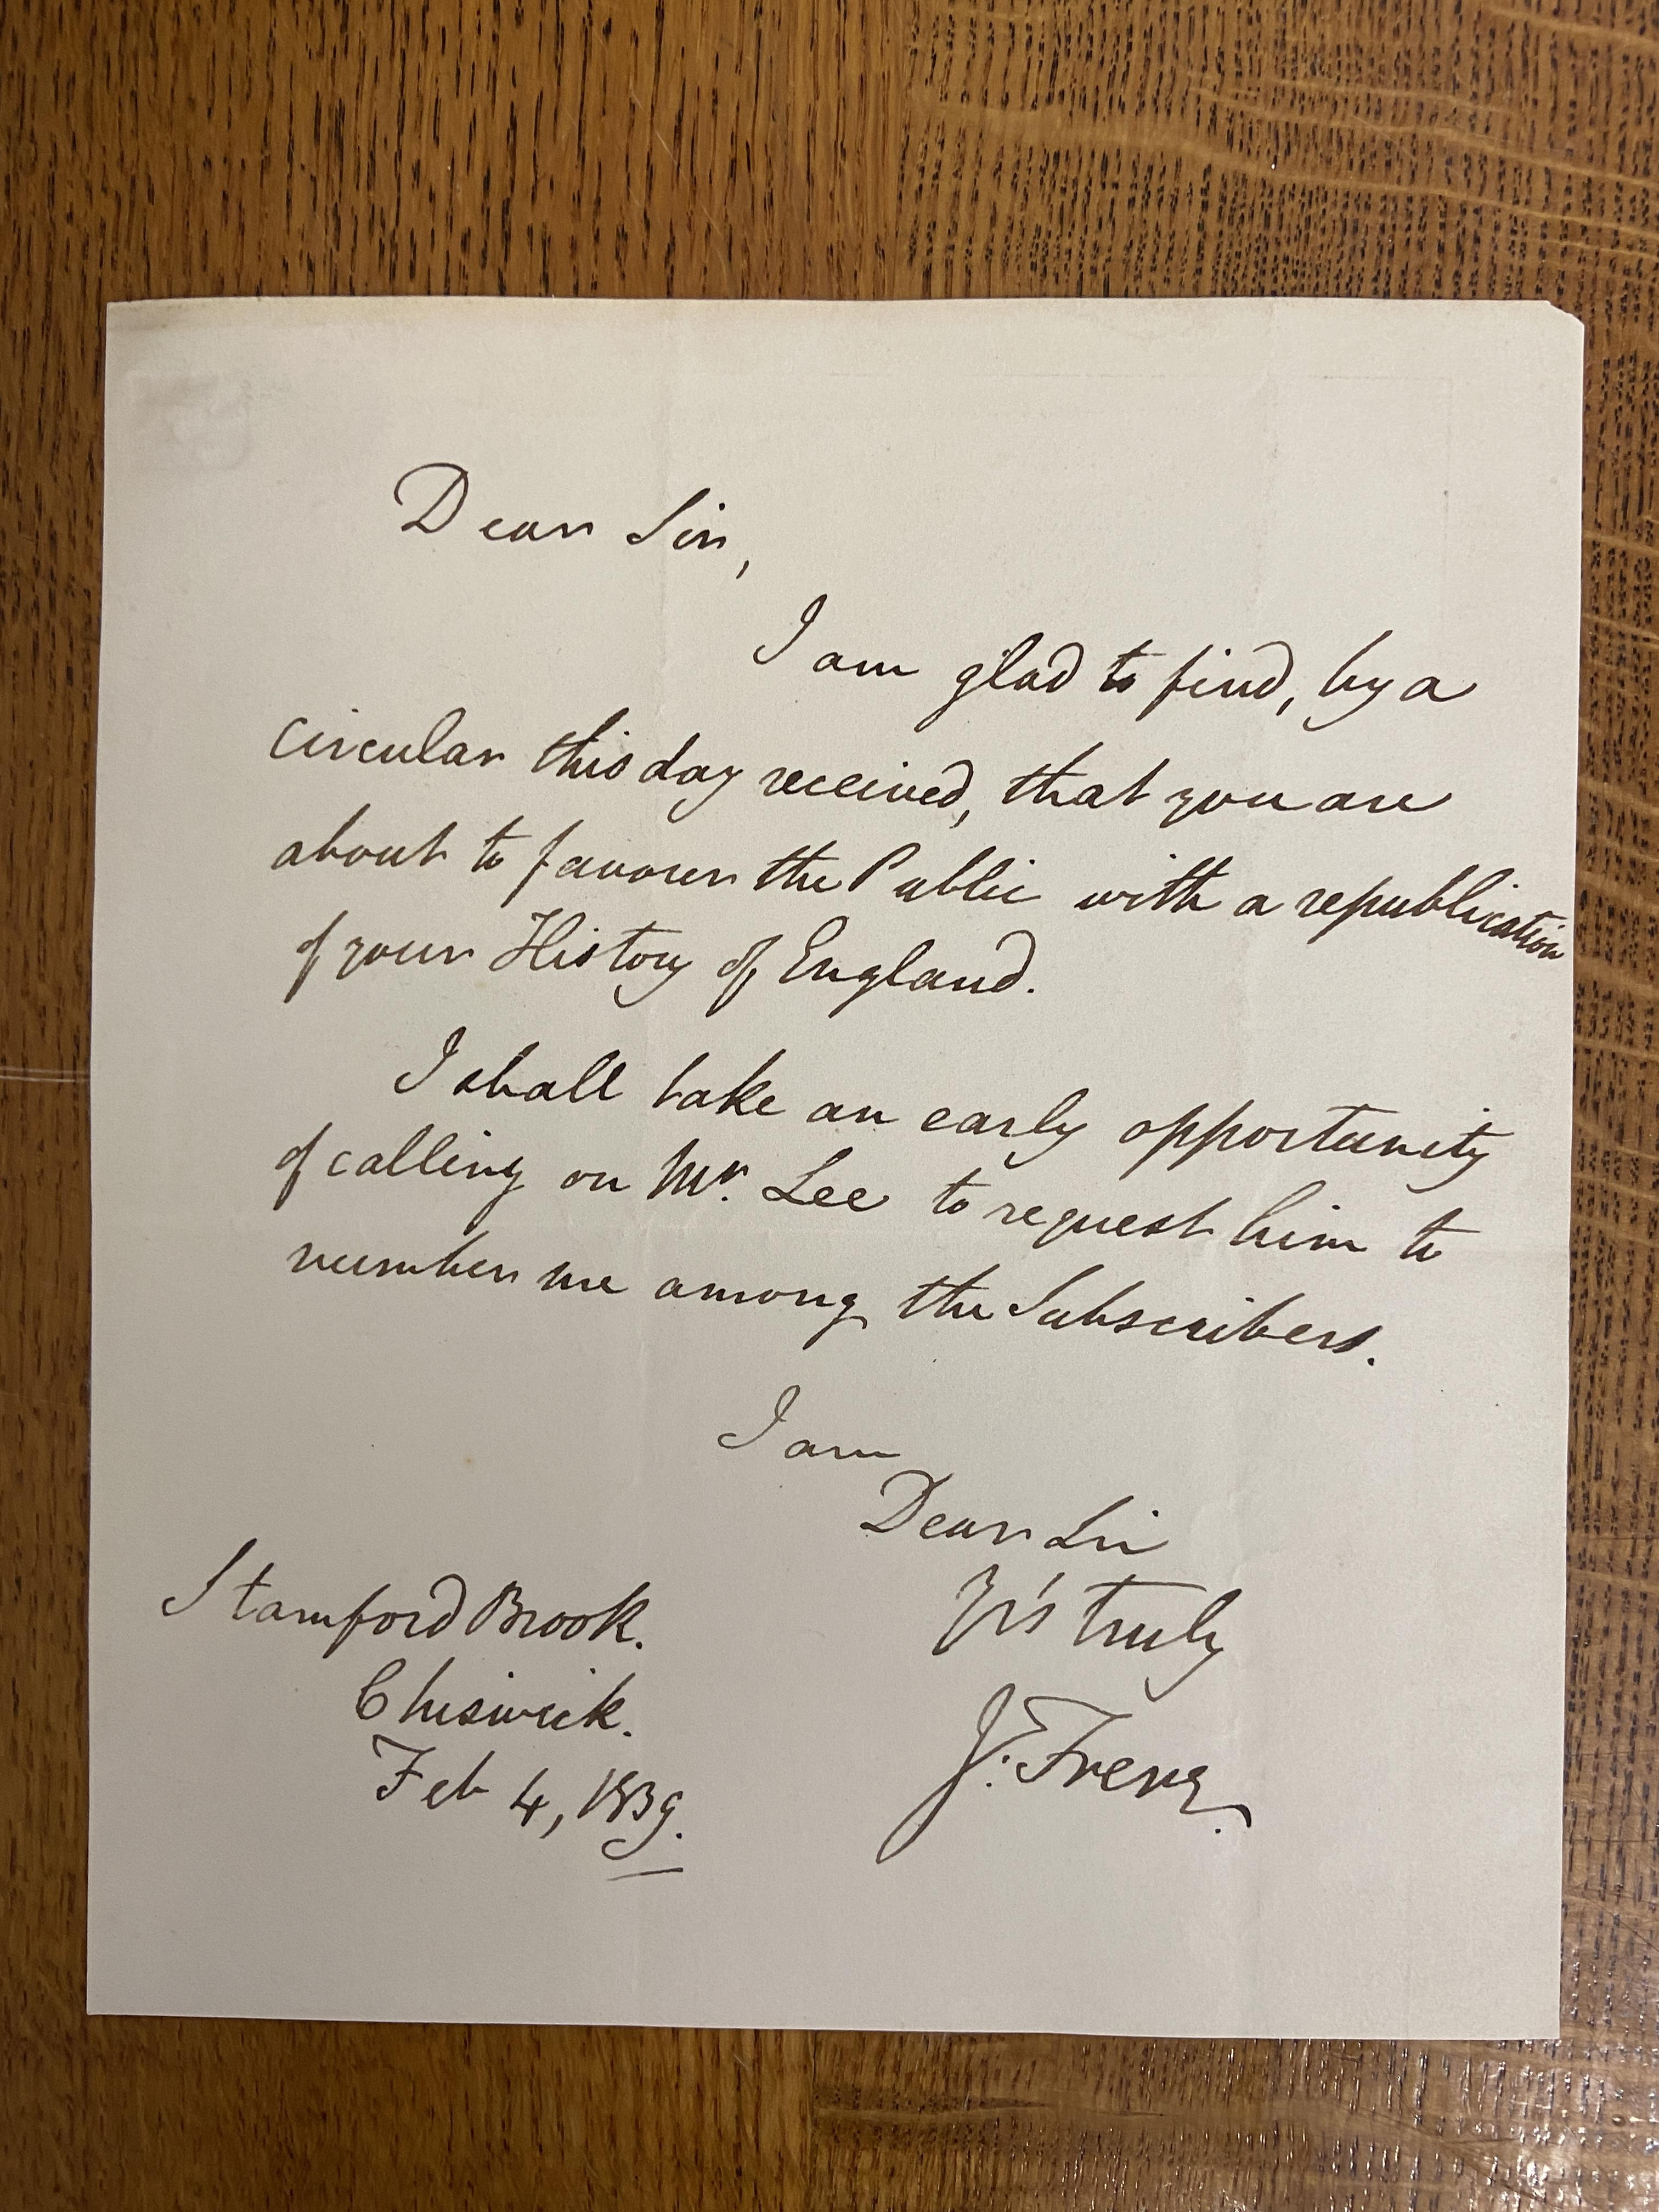 Dear Sir,
I am glad to find, by a
circular this day received, that you are
about to favour the Public with a republication
of your History of England.
I shall take an early opportunity
of calling on Mr. Lee to request him to
number me among the Subscribers.
I am
Dear Sir
Yrs truly
Stamford Brook.
Chiswick.
Feb 4, 1839.
J.